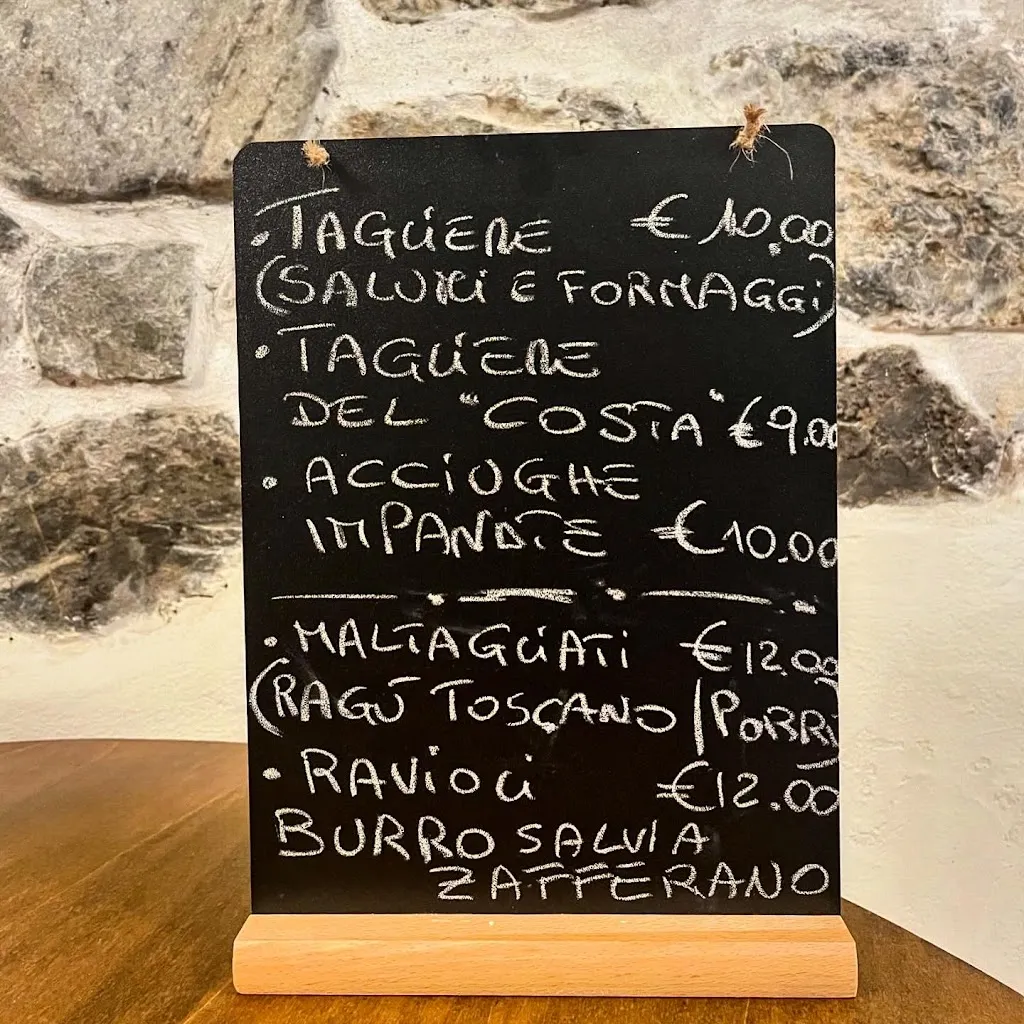 • TAGLIERE € 10,00
(SALUMI E FORMAGGI)
• TAGLIERE
DEL "COSTA" €9.00
• ACCIUGHE
IMPANATE €10.00
• MALTAGLIATI €12.00
(RAGÙ TOSCANO / PORRI)
• RAVIOLI €12.00
BURRO SALVIA
ZAFFERANO